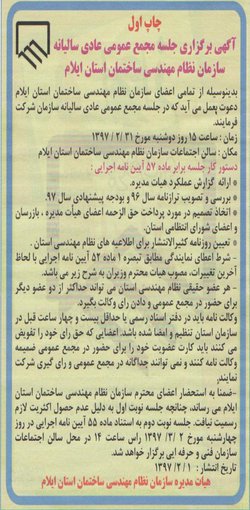 چاپ اول
آگهی برگزاری جلسه مجمع عمومی عادی سالیانه
سازمان نظام مهندسی ساختمان استان ایلام
بدینوسیله از تمامی اعضای سازمان نظام مهندسی ساختمان استان ایلام
دعوت بعمل می آید که در جلسه مجمع عمومی عادی سالیانه سازمان شرکت
فرمایند.
زمان : ساعت ۱۵ روز دوشنبه مورخ ۳۱ /۲ /۱۳۹۷
مکان : سالن اجتماعات سازمان نظام مهندسی ساختمان استان ایلام
دستور کار جلسه برابر ماده ۵۷ آیین نامه اجرایی :
* ارائه گزارش عملکرد هیات مدیره.
* بررسی و تصویب ترازنامه سال ۹۶ و بودجه پیشنهادی سال ۹۷.
* اتخاذ تصمیم در مورد پرداخت حق الزحمه اعضای هیأت مدیره ، بازرسان
و اعضای شورای انتظامی استان.
* تعیین روزنامه کثیرالانتشار برای اطلاعیه های نظام مهندسی استان .
- شرط اعطای نمایندگی مطابق تبصره ۱ ماده ۵۲ آیین نامه اجرایی با لحاظ
آخرین تغییرات، مصوب هیات محترم وزیران به شرح زیر می باشد.
- هر عضو حقیقی نظام مهندسی استان می تواند حداکثر از دو عضو دیگر
برای حضور در مجمع عمومی و دادن رای وکالت بگیرد.
وکالت نامه باید در دفتر اسناد رسمی یا حداقل بیست و چهار ساعت قبل در
سازمان استان تنظیم و امضا شده باشد. اعضائی که حق رای خود را تفویض
می کنند باید کارت عضویت خود را برای حضور در مجمع عمومی ضمیمه
وکالت نامه کنند و نمی توانند جداگانه در مجمع عمومی و رای گیری شرکت
نمایند.
-ضمنا به استحضار اعضای محترم سازمان نظام مهندسی ساختمان استان
ایلام می رساند، چنانچه جلسه نوبت اول به دلیل عدم حصول اکثریت لازم
رسمیت نیافت، جلسه نوبت دوم به استناد ماده ۵۵ آیین نامه اجرایی در روز
چهارشنبه مورخ ۲ /۳ /۱۳۹۷ راس ساعت ۱۴ در محل سالن اجتماعات
سازمان فنی و حرفه ایی برگزار خواهد شد.
تاریخ انتشار : ۱ /۲ /۱۳۹۷
هیات مدیره سازمان نظام مهندسی ساختمان استان ایلام